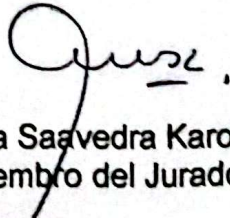 a Saavedra Karo
embro del Jurado